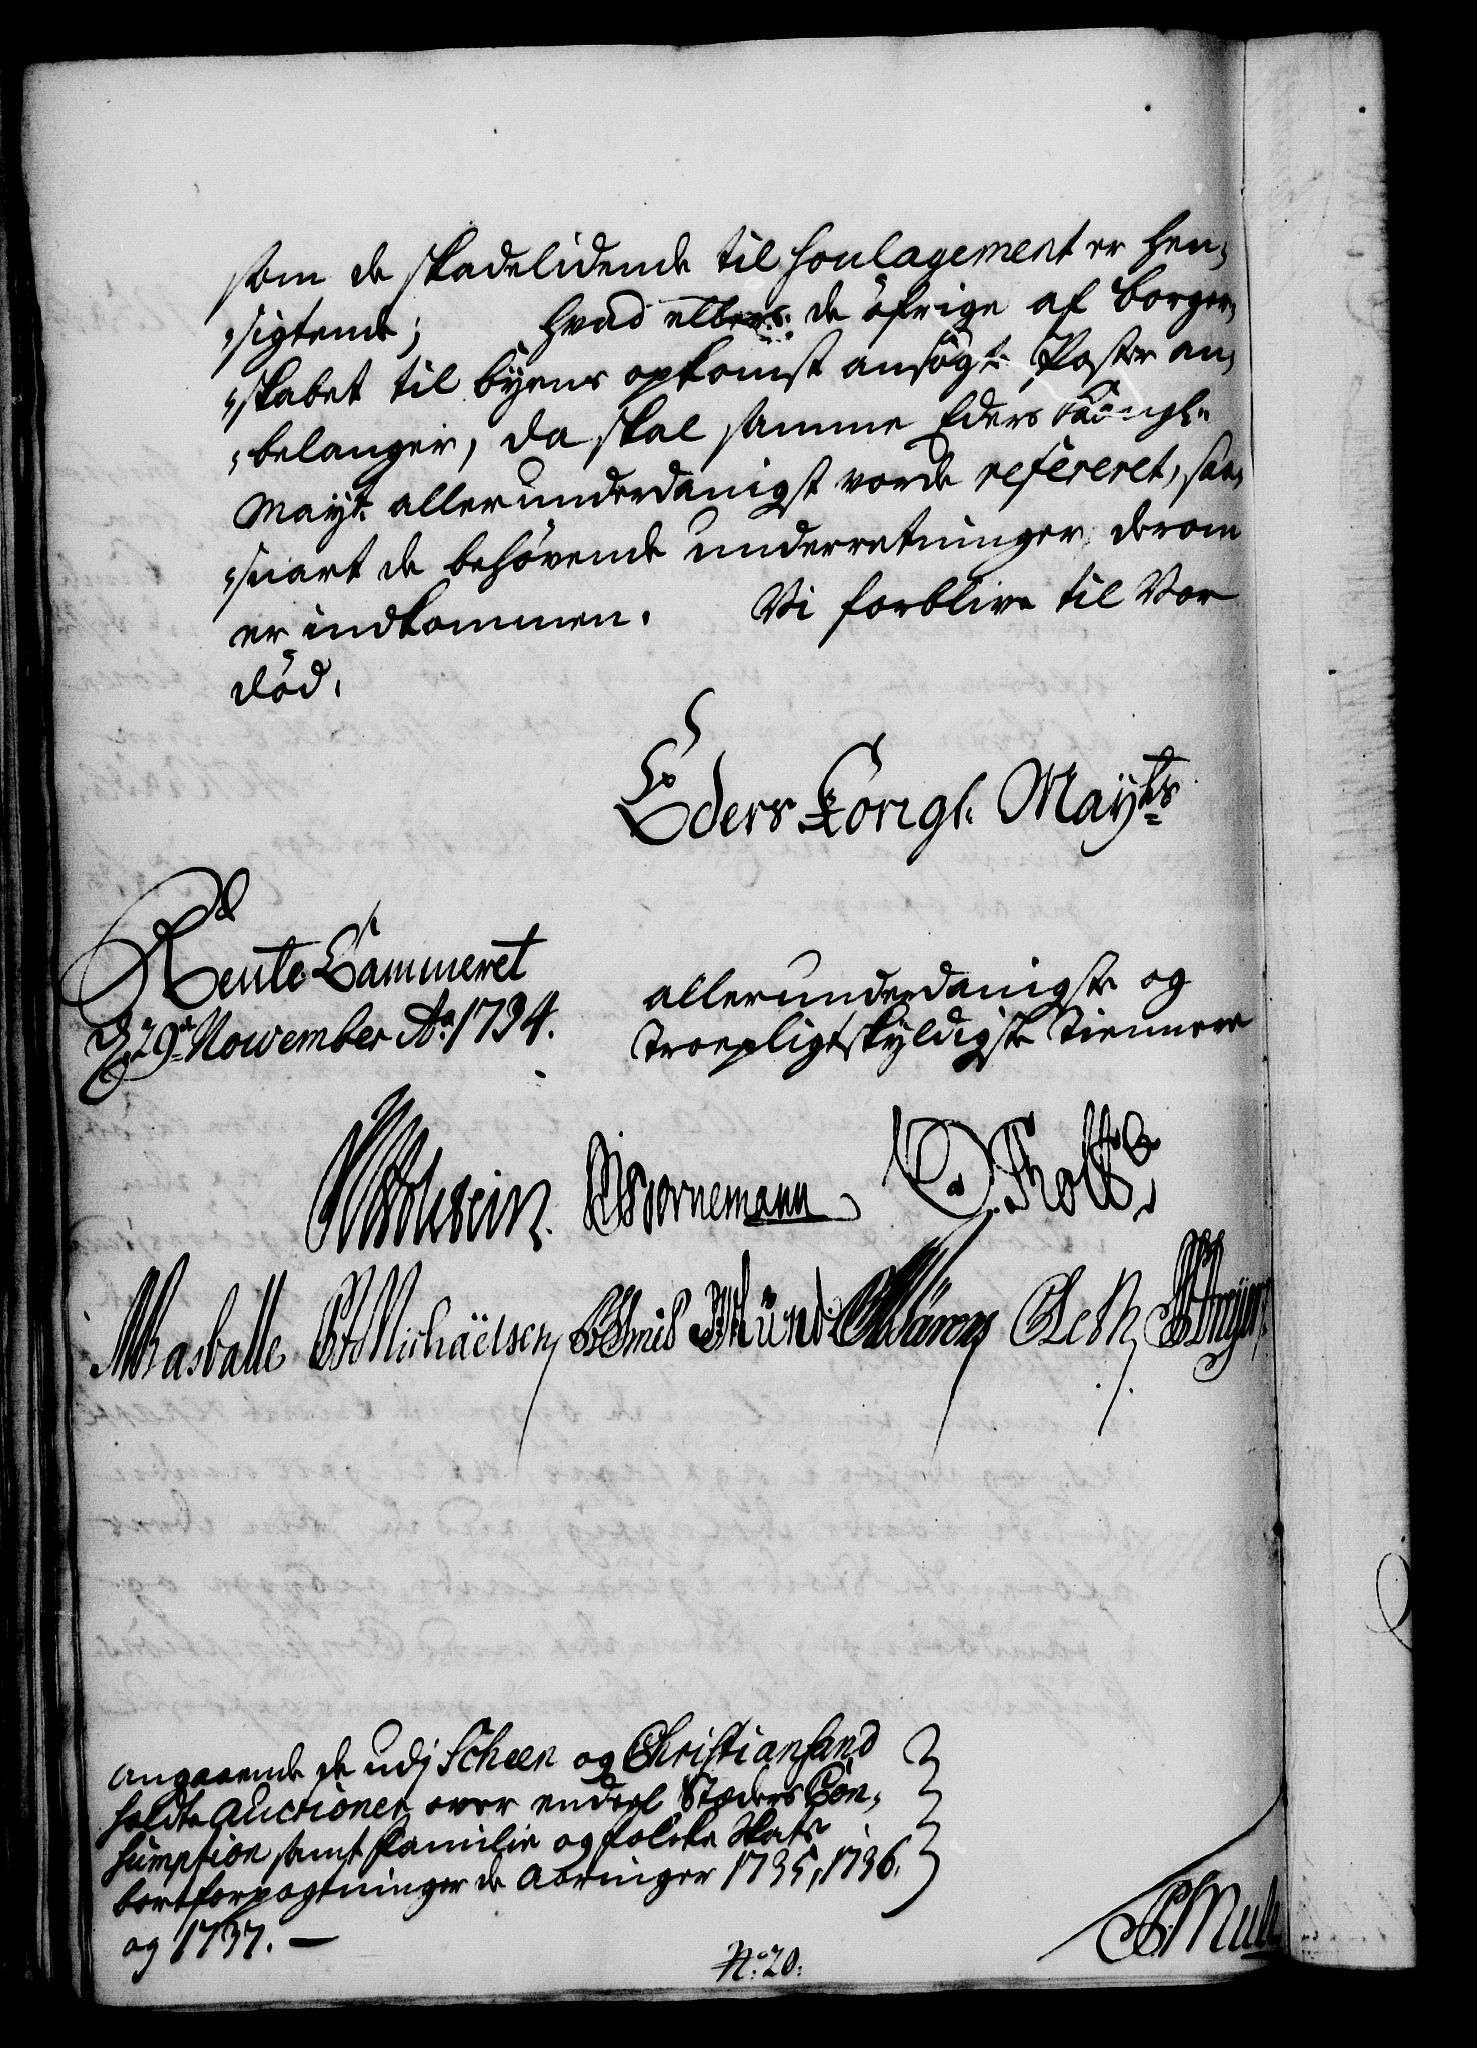 som de skadelidende til Soulagement er hen,
„sigtende; hvad ellers de öfrige af borger,
„skabet til byens opkomst ansögte Poster an,
„belanger, da skal samme Eders Kongl.
Mayt. allerunderdanigst vorde refereret, saa,
„snart de behövende underretninger derom
er indkommen. Vi forblive til Vor
död.
Eders Kongl. Mayts
Rente Cammeret
d 29de Nowember Ao. 1734.
allerunderdanigste og
troepligtskyldigste Tiennere
Bornemann
Rasballe Michäelsen
Angaaende de udj Scheen og Christiansand
holdte Auctioner over endeel Stæders Con,
sumption samt Familie og folcke Skats
bortforpagtninger de Aaringer 1735, 1736.
og 1737. —
No: 20.